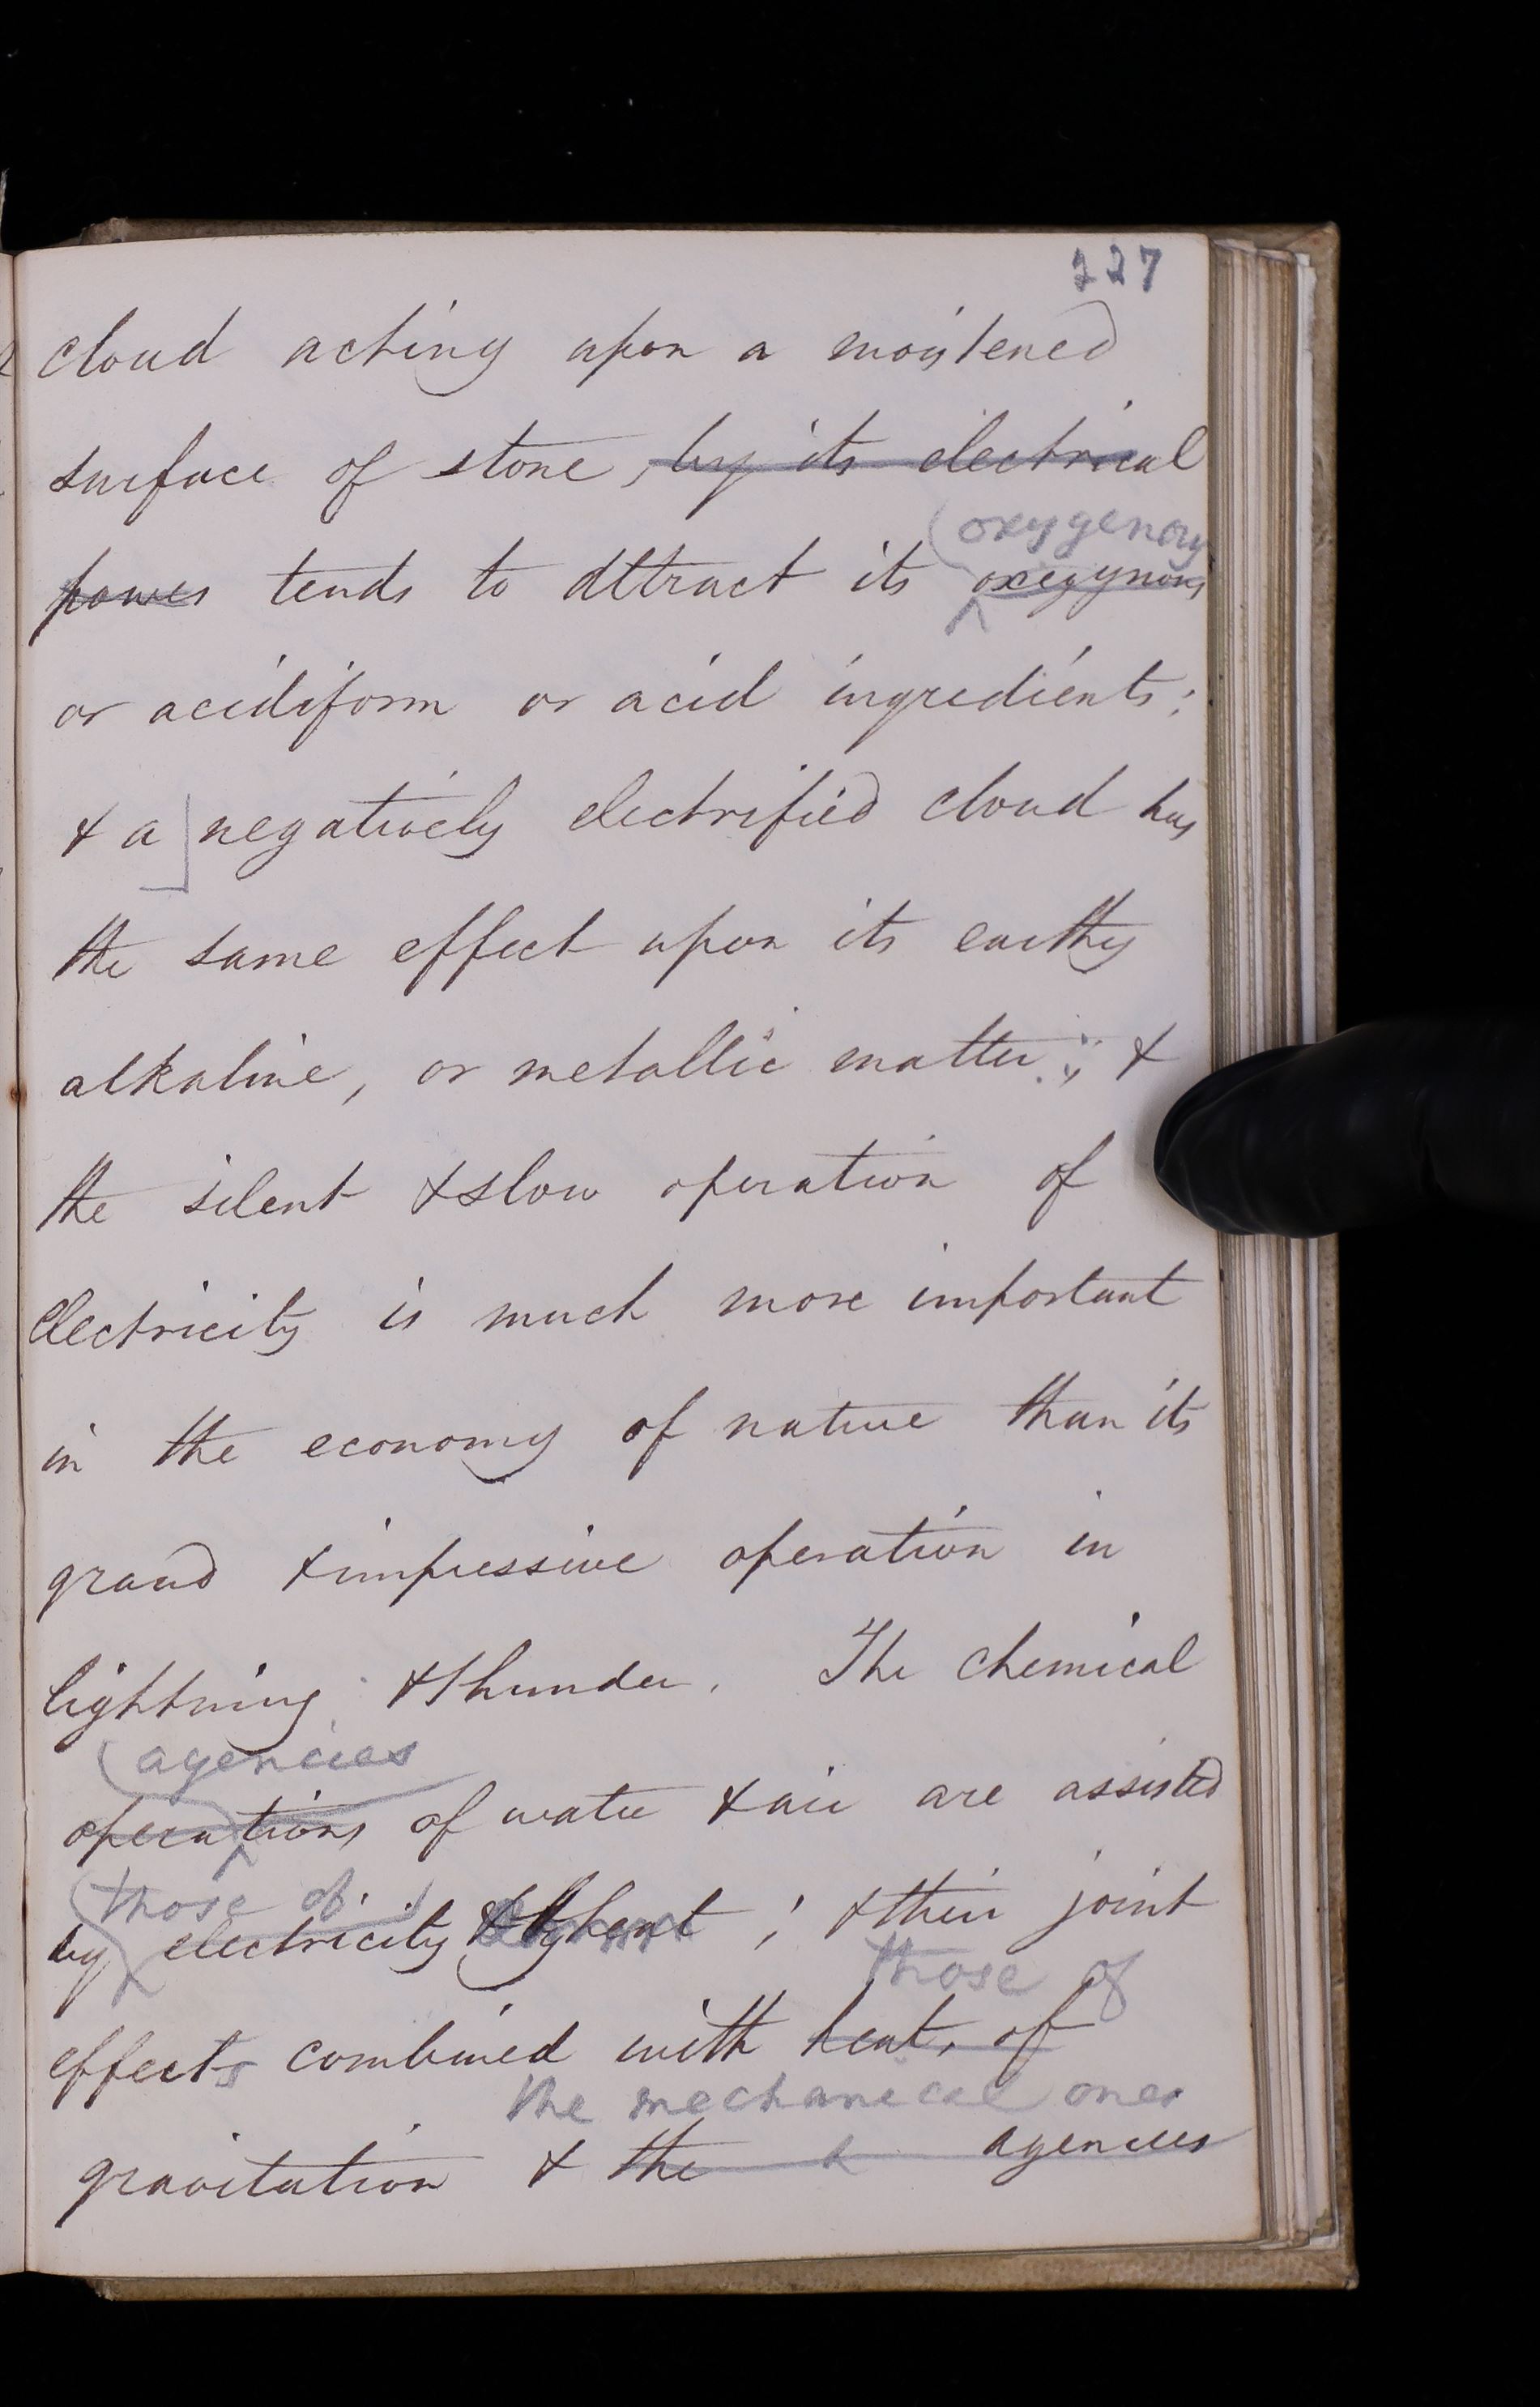 227
cloud acting upon a moistened
surface of stone, by its electrical
oxygenous
powers tends to attract its oxegynous
or acidiform or acid ingredients;
& a negatively electrified cloud has
the same effect upon its earthy
alkaline, or metallic matter; &
the silent & slow operation of
electricity is much more important
in the economy of nature than its
grand & impressive operation in
lightning & thunder. The chemical
agencies
operations of water & air are assisted
those of
by electricity & heat; & their joint
those of
effects combined with heat, of
the mechanical ones
gravitation & the agencies